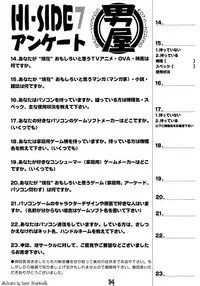 HI-SIDE7
アンケート
男屋
14.あなたが"現在"おもしろいと思うTVアニメ・OVA・映画は
何ですか。
15.あなたが"現在"おもしろいと思うマンガ(マンガ家)・小説・
雑誌は何ですか。
16.あなたはパソコンを持っていますか。持っている方は機種名・スペッ
ク、主な使用状況を教えて下さい。
17.あなたの好きなパソコンのゲームソフトメーカーはどこですか。
(いくつでも)
18.あなたは家庭用ゲーム機を持っていますか。持っている方は機種名
を教えて下さい。(いくつでも)
19.あなたが好きなコンシューマー(家庭用)ゲームメーカーはど
こですか。(いくつでも)
20.あなたが現在おもしろいと思うゲーム(家庭用、アーケード、
パソコン問わず)は何ですか。
21.パソコンゲームのキャラクターデザインや原画で好きな人はいま
すか。(名前が分からない場合はゲームソフト名を書いて下さい)
22.あなたはパソコン通信をしていますか。している方は、さしつ
かえなければネット名、ハンドルネームを教えて下さい。
23.本誌、当サークルに対して、ご意見やご要望などございました
らお書き下さい。
14.
15.
16.
1.持っていない
2.持っている
機種(
スペック(
使用状況
17.
18.
1.持っていない
2.持っている
19.
20.
21.
22.
23.
14